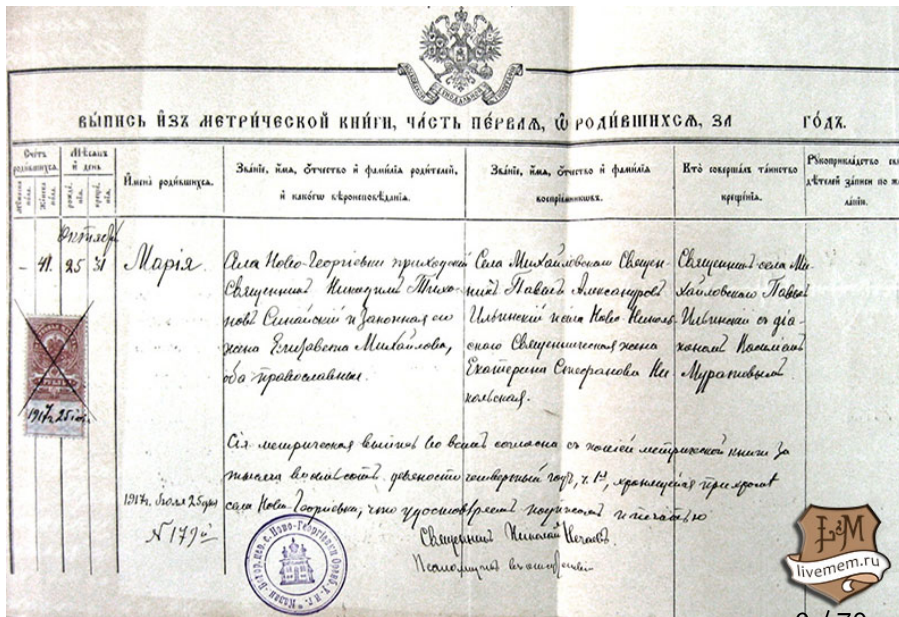 ВЫПИСЬ ИЗЪ МЕТРИЧЕСКОЙ КНИГИ, ЧАСТЬ ПЕРВАЯ, Ѡ РОДИВШИХСЯ, ЗА ГОДЪ.
Счетъ родившихся.
Мѣсяцъ и день
Имена родившихся.
Званіе, имя, отчество и фамилія родителей,
и какого вѣроисповѣданія.
Званіе, имя, отчество и фамилія
воспріемниковъ.
Кто совершалъ таинство
крещенія.
Рукоприкладство
дѣтелей записи по
Октябрь
- 41. 25 31
Марія.
Села Ново-Георгіевки приходскій
Священникъ Никодимъ Тихо-
новъ Синайскій и законная его
жена Елизавета Михайлова,
оба православные.
Села Михайловскаго Священ-
никъ Павелъ Александровъ
Ильинскій и села Ново-Николь-
скаго Священническая жена
Екатерина Стефанова Ни-
кольская.
Священникъ села Ми-
хайловскаго Павелъ
Ильинскій съ діа-
кономъ
Муратовымъ
1917 г. 25
Сія метрическая выпись во всемъ согласна съ метрической книги за
тысяча восемьсотъ девяносто четвертый годъ, ч. 1-я, хранящейся при
села Ново-Георгіевки, что удостовѣряемъ подписомъ и печатью
1917 г. Іюля 25 дня
№ 179
Священникъ Николай Нечаевъ.
Псаломщикъ
L&M
livemem.ru